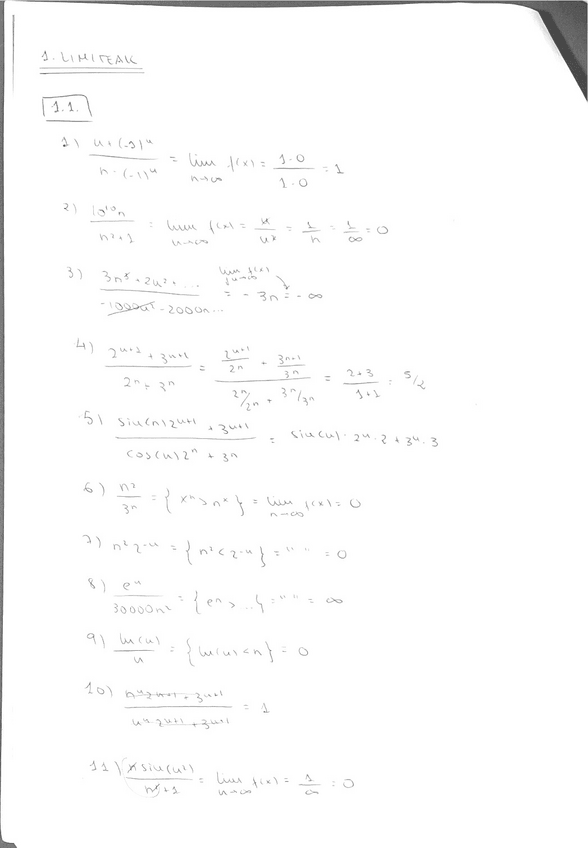 1. LIMITEAK
1.1.
1) n+(-1)^n / n-(-1)^n = lim n→∞ f(x) = 1·0 / 1·0 = 1
2) 10^10 n / n²+1 = lim n→∞ f(x) = n / n² = 1/n = 1/∞ = 0
3) 3n⁵+2n²+... / -1000n⁴-2000n... = lim n→∞ f(x) - 3n = -∞
4) 2^n+1 + 3^n+1 / 2^n + 3^n = 2^n+1 / 2^n + 3^n+1 / 3^n / 2^n/2^n + 3^n/3^n = 2+3 / 1+1 = 5/2
5) sin(n)2^n+1 + 3^n+1 / cos(n)2^n + 3^n = sin(n)·2^n·2+3^n·3
6) n² / 3^n = {x^n > n^x} = lim n→∞ f(x) = 0
7) n² 2^-n = {n² < 2^-n} = " " = 0
8) e^n / 30000n² = {e^n > ...} = " " = ∞
9) ln(n) / n = {ln(n) < n} = 0
10) n^n 2^n+1 + 3^n+1 / n^n 2^n+1 + 3^n+1 = 1
11) n sin(n²) / +1 = lim n→∞ f(x) = 1/∞ = 0